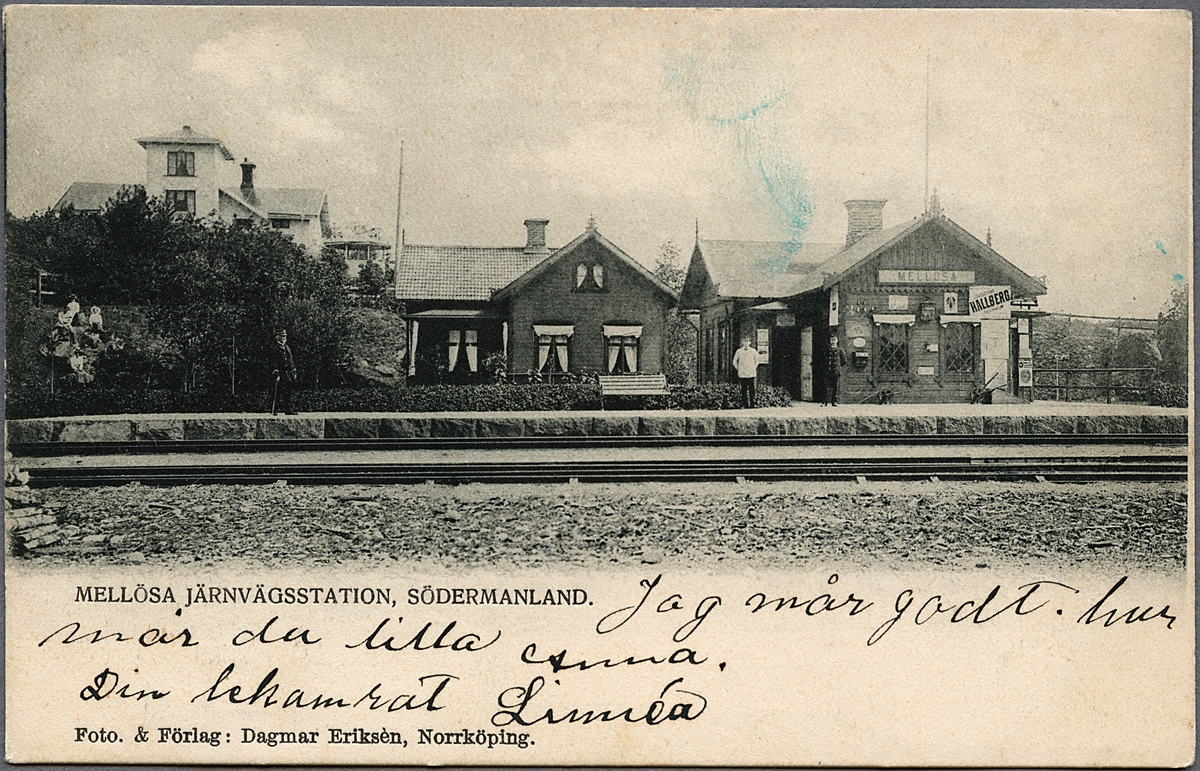 MELLÖSA
HALLBERG
MELLÖSA JÄRNVÄGSSTATION, SÖDERMANLAND. Jag mår godt. hur
mår du lilla Anna.
Din lekamrat Linnéa
Foto. & Förlag: Dagmar Eriksèn, Norrköping.